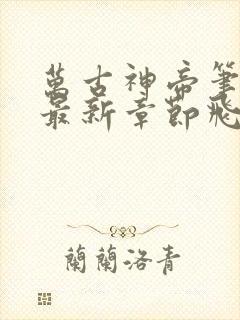 萬古神帝筆
最新章節飛
蘭蘭洛青